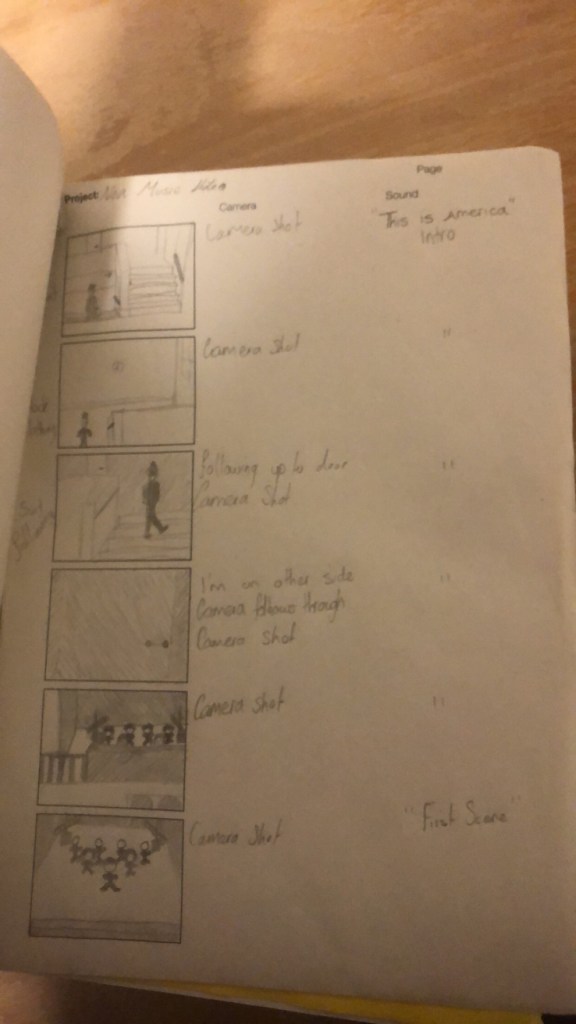 Page
Project: Music Video
Camera
Sound
Camera Shot
"This is America"
Intro
Camera Shot
"
Following up to door
"
Camera Shot
I'm on other side
"
Camera follows through
Camera shot
Camera shot
"
Camera Shot
"First Scene"